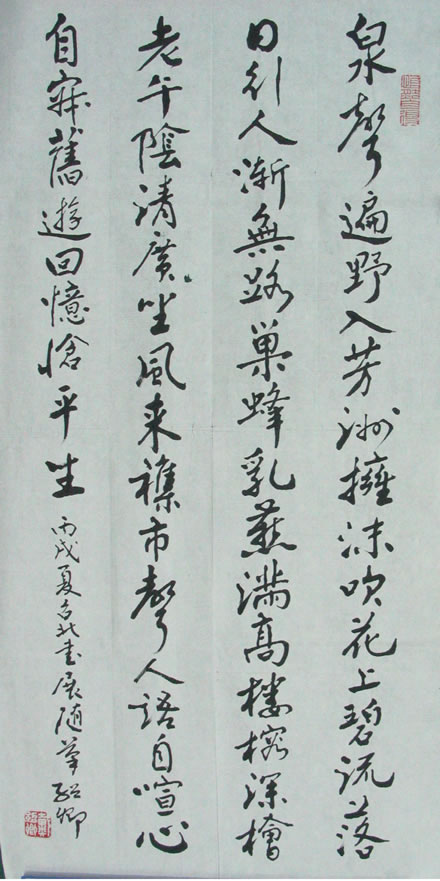 泉聲遍野入芳洲擁沫吹花上碧流落
日行人漸無路巢蜂乳燕滿高樓榕深檜
老午陰清廣坐風來襍市聲人語自喧心
自寂舊遊回憶愴平生
丙戌夏台北書展隨筆 紹卿